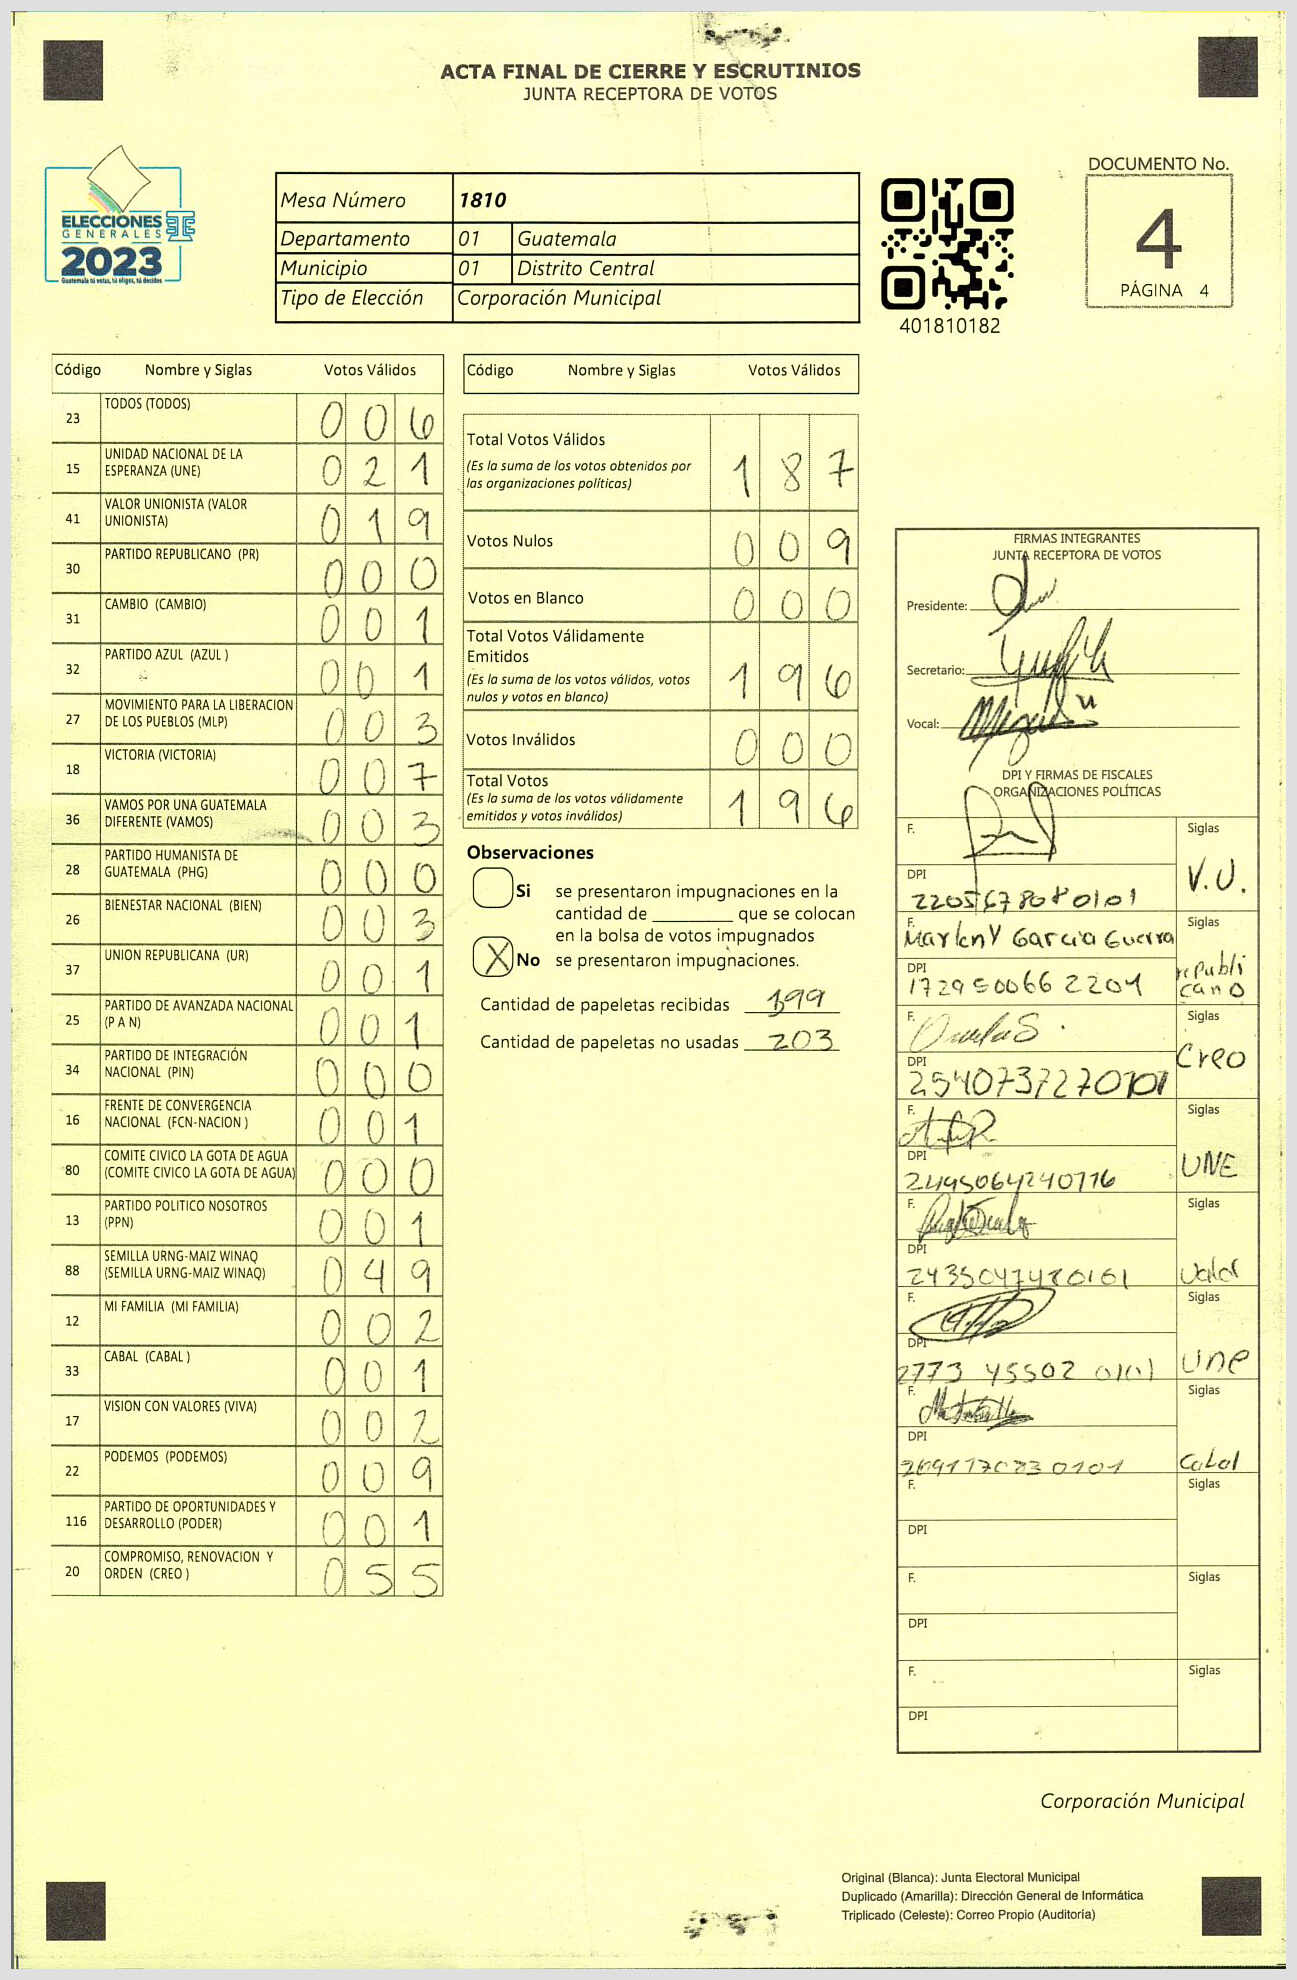 ACTA FINAL DE CIERRE Y ESCRUTINIOS
JUNTA RECEPTORA DE VOTOS
ELECCIONES
GENERALES
2023
Guatemala tú votas, tú eliges, tú decides
Mesa Número 1810
Departamento 01 Guatemala
Municipio 01 Distrito Central
Tipo de Elección Corporación Municipal
401810182
DOCUMENTO No.
4
PÁGINA 4
Código Nombre y Siglas Votos Válidos
23 TODOS (TODOS) 0 0 6
15 UNIDAD NACIONAL DE LA ESPERANZA (UNE) 0 2 1
41 VALOR UNIONISTA (VALOR UNIONISTA) 0 1 9
30 PARTIDO REPUBLICANO (PR) 0 0 0
31 CAMBIO (CAMBIO) 0 0 1
32 PARTIDO AZUL (AZUL ) 0 0 1
27 MOVIMIENTO PARA LA LIBERACION DE LOS PUEBLOS (MLP) 0 0 3
18 VICTORIA (VICTORIA) 0 0 7
36 VAMOS POR UNA GUATEMALA DIFERENTE (VAMOS) 0 0 3
28 PARTIDO HUMANISTA DE GUATEMALA (PHG) 0 0 0
26 BIENESTAR NACIONAL (BIEN) 0 0 3
37 UNION REPUBLICANA (UR) 0 0 1
25 PARTIDO DE AVANZADA NACIONAL (P A N) 0 0 1
34 PARTIDO DE INTEGRACIÓN NACIONAL (PIN) 0 0 0
16 FRENTE DE CONVERGENCIA NACIONAL (FCN-NACION ) 0 0 1
80 COMITE CIVICO LA GOTA DE AGUA (COMITE CIVICO LA GOTA DE AGUA) 0 0 0
13 PARTIDO POLITICO NOSOTROS (PPN) 0 0 1
88 SEMILLA URNG-MAIZ WINAQ (SEMILLA URNG-MAIZ WINAQ) 0 4 9
12 MI FAMILIA (MI FAMILIA) 0 0 2
33 CABAL (CABAL ) 0 0 1
17 VISION CON VALORES (VIVA) 0 0 2
22 PODEMOS (PODEMOS) 0 0 9
116 PARTIDO DE OPORTUNIDADES Y DESARROLLO (PODER) 0 0 1
20 COMPROMISO, RENOVACION Y ORDEN (CREO ) 0 5 5
Código Nombre y Siglas Votos Válidos
Total Votos Válidos 1 8 7
(Es la suma de los votos obtenidos por
las organizaciones políticas)
Votos Nulos 0 0 9
Votos en Blanco 0 0 0
Total Votos Válidamente
Emitidos 1 9 6
(Es la suma de los votos válidos, votos
nulos y votos en blanco)
Votos Inválidos 0 0 0
Total Votos 1 9 6
(Es la suma de los votos válidamente
emitidos y votos inválidos)
Observaciones
Si se presentaron impugnaciones en la
cantidad de ________ que se colocan
en la bolsa de votos impugnados
X No se presentaron impugnaciones.
Cantidad de papeletas recibidas
Cantidad de papeletas no usadas 203
FIRMAS INTEGRANTES
JUNTA RECEPTORA DE VOTOS
Presidente:
Secretario:
Vocal:
DPI Y FIRMAS DE FISCALES
ORGANIZACIONES POLÍTICAS
F. Siglas
V.U.
DPI
F. Marleny Garcia Guerra Siglas
republi
cano
DPI 1729500662201
F. Siglas
Creo
DPI 2540737270101
F. Siglas
UNE
DPI 2495064240116
F. Siglas
Valor
DPI
F. Siglas
Une
DPI 2773 45502 0101
F. Siglas
Cabal
DPI
F. Siglas
DPI
F. Siglas
DPI
F. Siglas
DPI
Corporación Municipal
Original (Blanca): Junta Electoral Municipal
Duplicado (Amarilla): Dirección General de Informática
Triplicado (Celeste): Correo Propio (Auditoría)